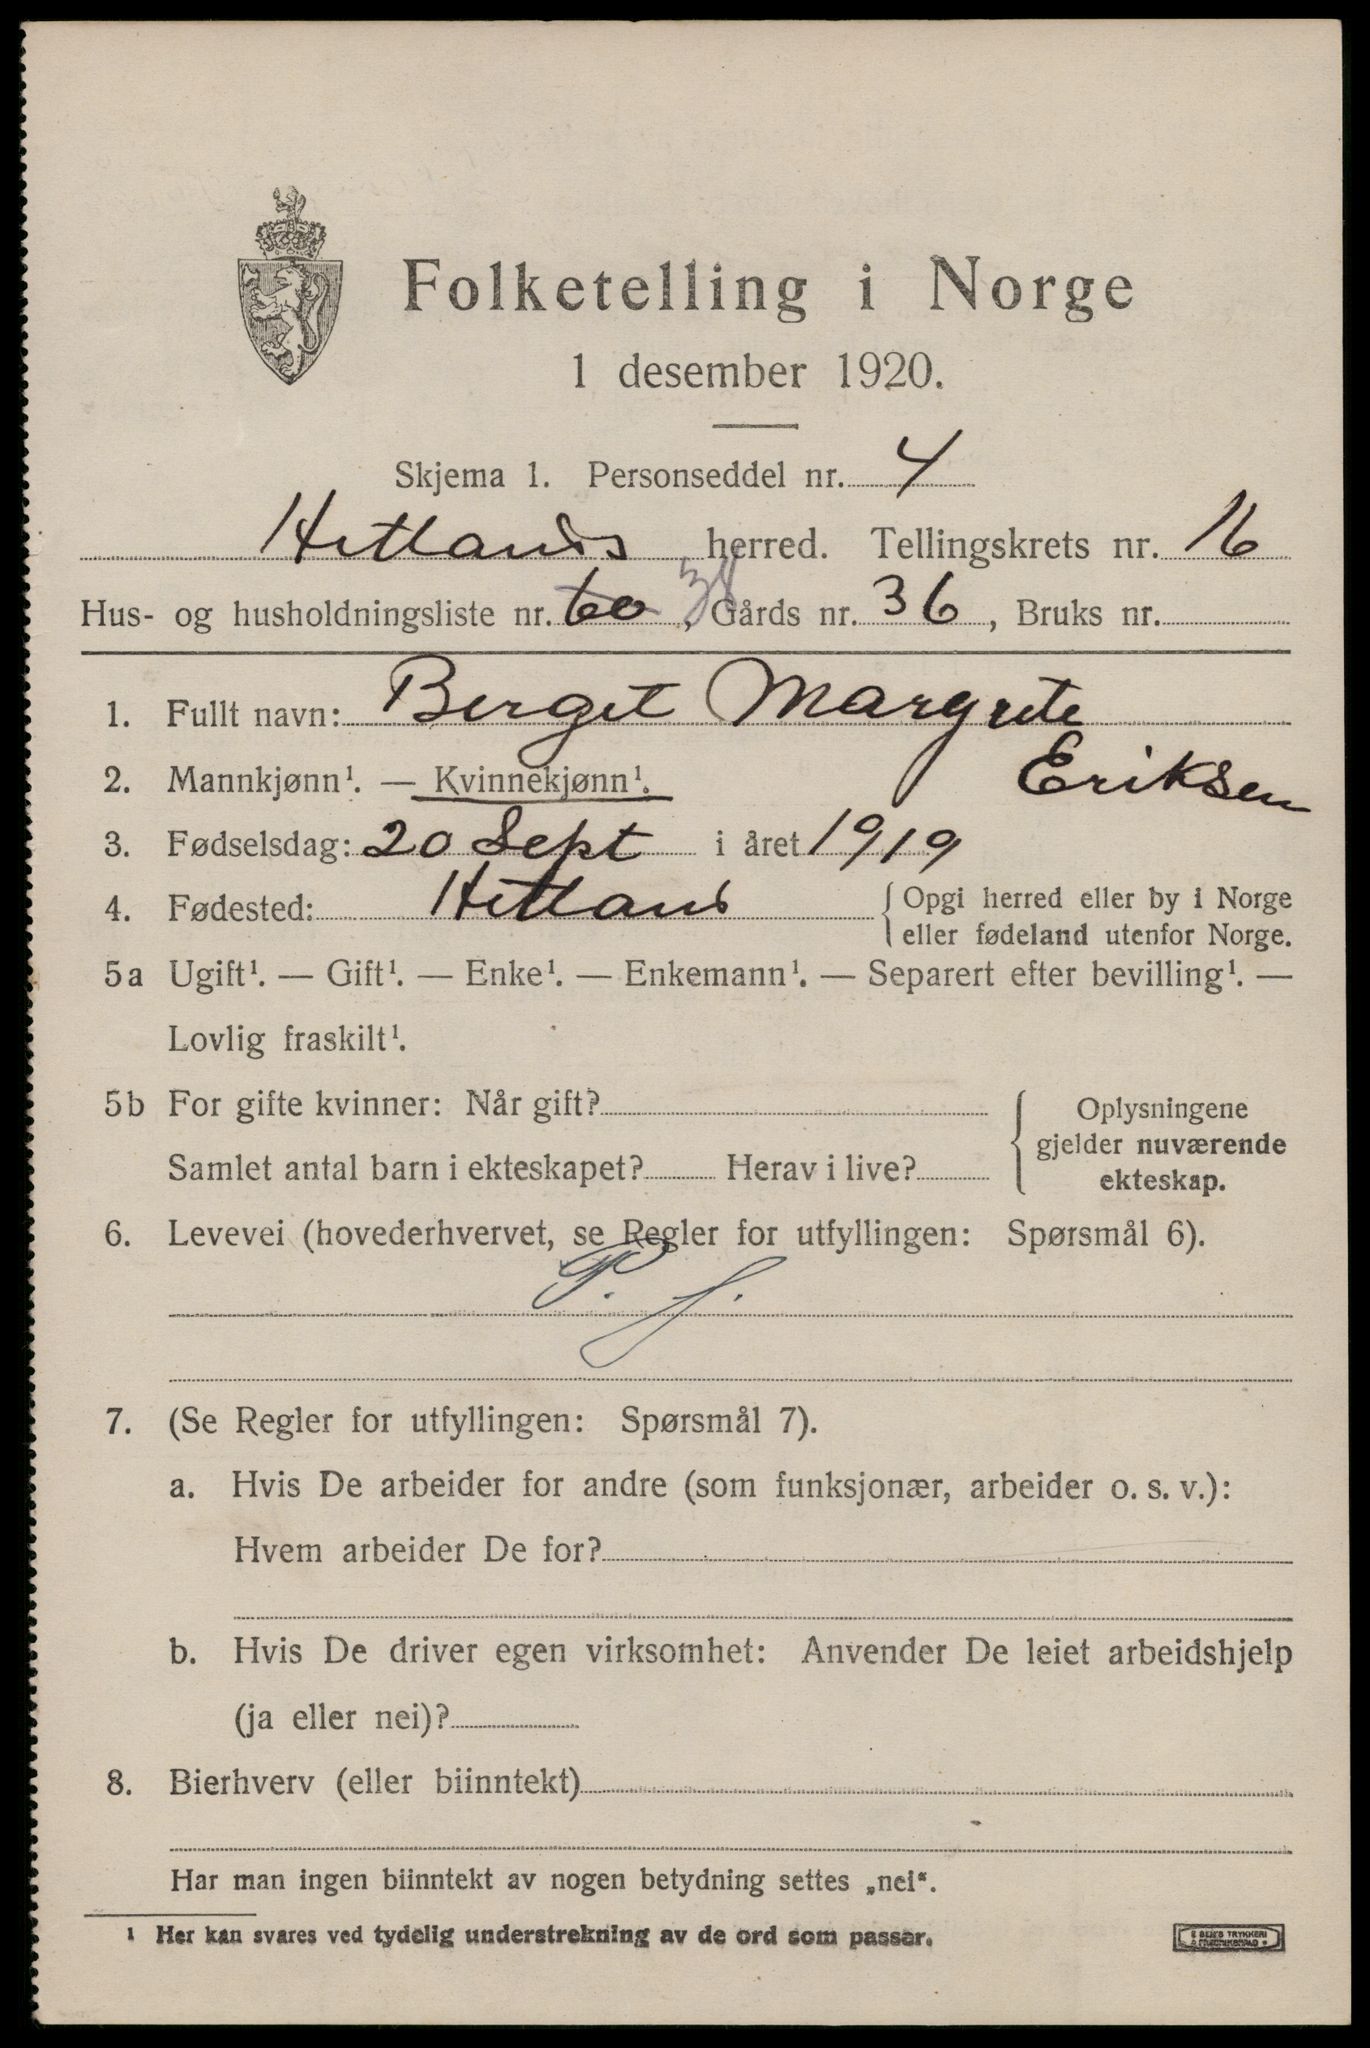 Folketelling i Norge
1 desember 1920.
Skjema 1. Personseddel nr. 4
Hetlands herred. Tellingskrets nr. 16
Hus- og husholdningsliste nr. 60 38, Gårds nr. 36, Bruks nr.
1. Fullt navn: Berget Margrete
Eriksen
2. Mannkjønn¹. — Kvinnekjønn¹.
3. Fødselsdag: 20 Sept i året 1919
4. Fødested: Hetland {Opgi herred eller by i Norge
eller fødeland utenfor Norge.
5a Ugift¹. — Gift¹. — Enke¹. — Enkemann¹. — Separert efter bevilling¹. —
Lovlig fraskilt¹.
5b For gifte kvinner: Når gift?
Samlet antal barn i ekteskapet? Herav i live?
Oplysningene
gjelder nuværende
ekteskap.
6. Levevei (hovederhvervet, se Regler for utfyllingen: Spørsmål 6).
P. f.
7. (Se Regler for utfyllingen: Spørsmål 7).
a. Hvis De arbeider for andre (som funksjonær, arbeider o. s. v.):
Hvem arbeider De for?
b. Hvis De driver egen virksomhet: Anvender De leiet arbeidshjelp
(ja eller nei)?
8. Bierhverv (eller biinntekt)
Har man ingen biinntekt av nogen betydning settes „nei“.
¹ Her kan svares ved tydelig understrekning av de ord som passer.